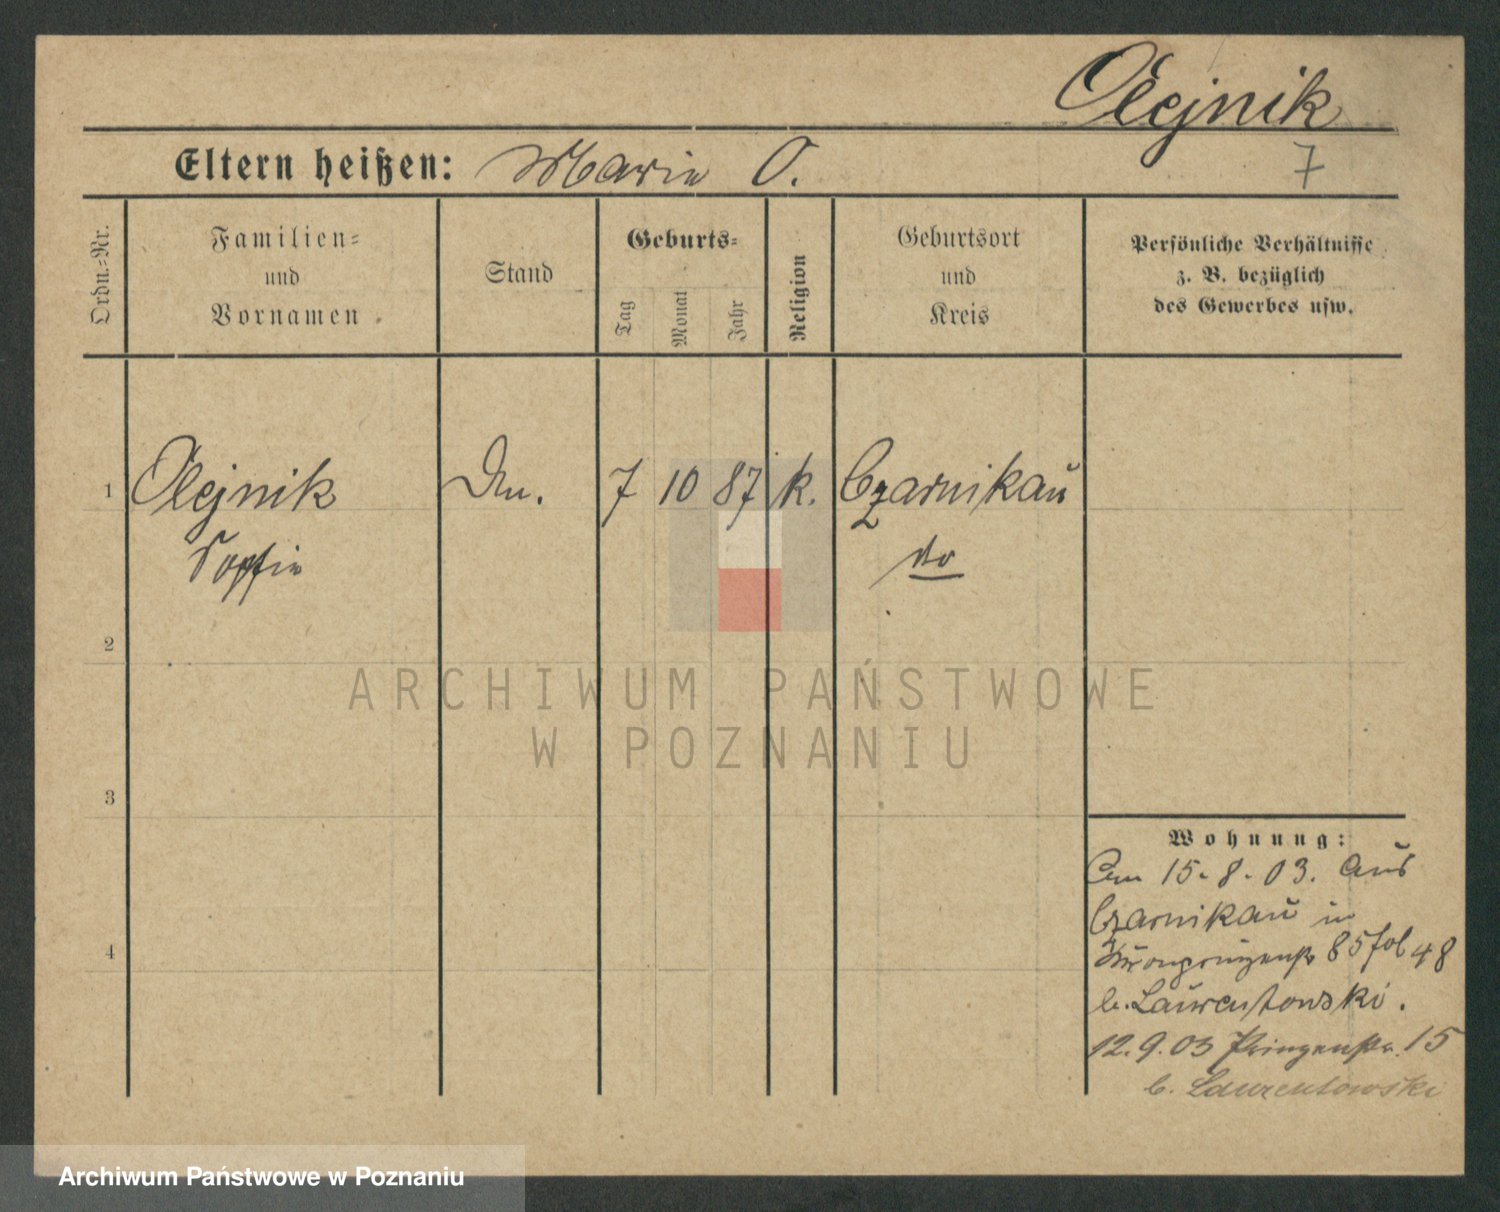 Olejnik
7
Eltern heißen: Marie O.
Ordn.-Nr.
Familien-
und
Vornamen
Stand
Geburts-
Tag
Monat
Jahr
Religion
Geburtsort
und
Kreis
Persönliche Verhältnisse
z. B. bezüglich
des Gewerbes usw.
1 Olejnik 7 10 87 k. Czarnikau
Sophie do
2
3
4
Wohnung:
Am 15.8.03. aus
Czarnikau in
Kronprinzenstr 85 48
b. Laurentowski.
12.9.03 Prinzenstr. 15
b. Laurentowski
ARCHIWUM PAŃSTWOWE
W POZNANIU
Archiwum Państwowe w Poznaniu